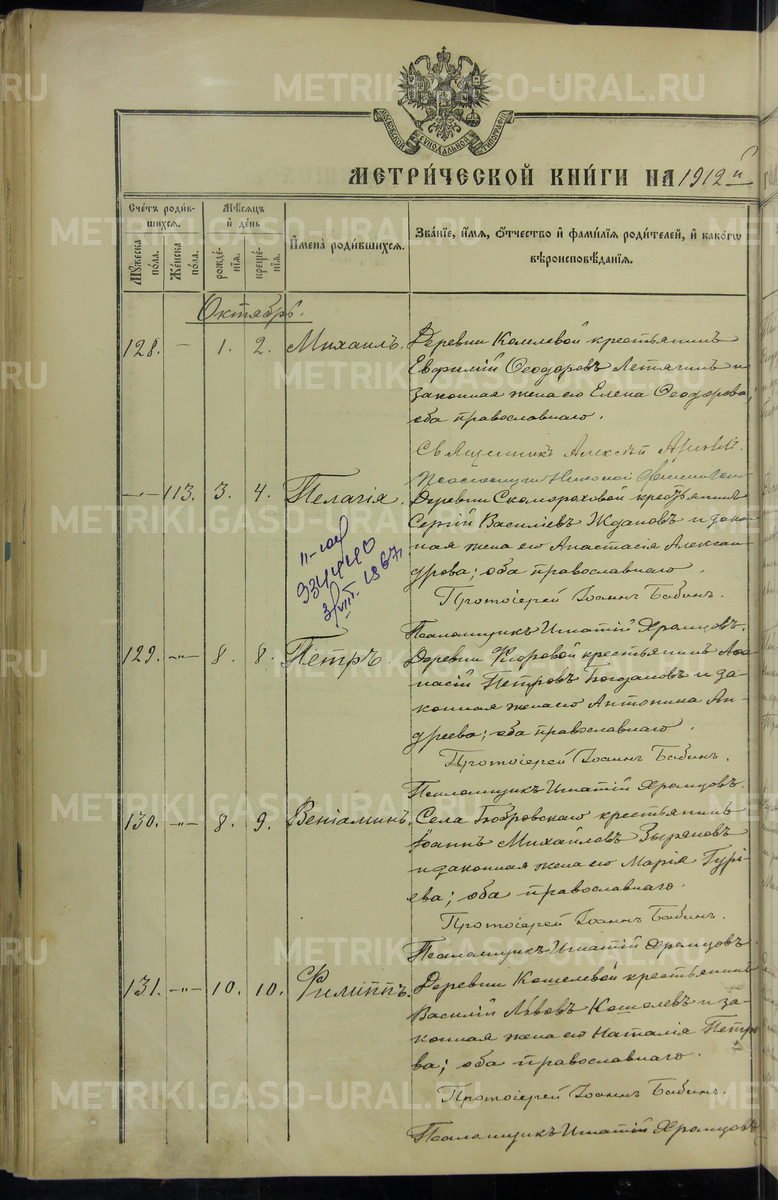 METRIKI.GASO-URAL.RU
МОСКОВСКОЙ СѴНОДАЛЬНОЙ ТИПОГРАФІИ
МЕТРИЧЕСКОЙ КНИГИ НА 1912 й
Счетъ родившихся.
Мужеска пола.
Женска пола.
Мѣсяцъ и день
рожденія.
крещенія.
Имена родившихся.
Званіе, имя, отчество и фамилія родителей, и какого вѣроисповѣданія.
Октябрь.
128. — 1. 2. Михаилъ.
Деревни Кошелевой крестьянинъ
Евфимій Ѳеодоровъ Летягинъ и
законная жена его Елена Ѳеодорова,
оба православнаго.
Священникъ Алексѣй
Николай
—"— 113. 3. 4. Пелагія.
Деревни Скомороховой крестьянинъ
Сергій Василіевъ Ждановъ и закон-
ная жена его Анастасія Алексан-
дрова; оба православнаго.
Протоіерей Іоаннъ Бабинъ.
Псаломщикъ Игнатій Храмцовъ.
II-ЮЯ
3/VIII. 1967г
129. —"— 8. 8. Петръ.
Деревни крестьянинъ Аѳа-
насій Петровъ Богдановъ и за-
конная жена его Антонина Ан-
дреева; оба православнаго.
Протоіерей Іоаннъ Бабинъ.
Псаломщикъ Игнатій Храмцовъ.
130. —"— 8. 9. Веніаминъ.
Села Бобровскаго крестьянинъ
Іоаннъ Михайловъ Зыряновъ
и законная жена его Марія Гурі-
ева; оба православнаго.
Протоіерей Іоаннъ Бабинъ.
Псаломщикъ Игнатій Храмцовъ.
131. —"— 10. 10. Филиппъ.
Деревни Кошелевой крестьянинъ
Василій Львовъ Кошелевъ и за-
конная жена его Наталія Петро-
ва; оба православнаго.
Протоіерей Іоаннъ Бабинъ.
Псаломщикъ Игнатій Храмцовъ